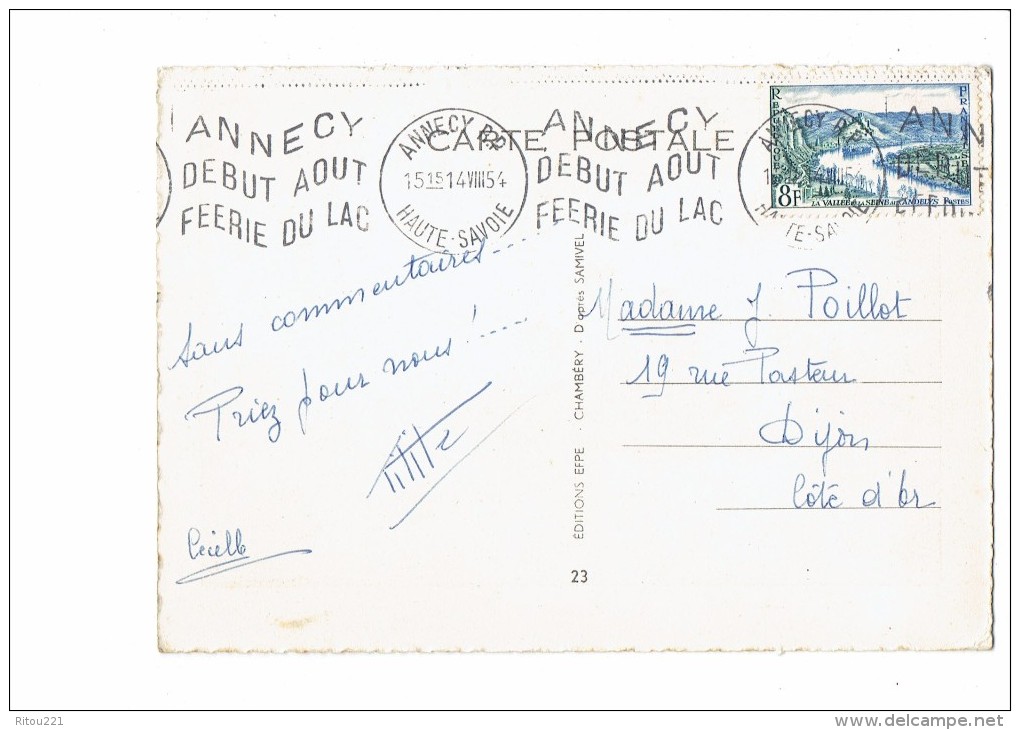 CARTE POSTALE
ANNECY
DEBUT AOUT
FEERIE DU LAC
ANNECY RP
15 15 14 VIII 54
HAUTE-SAVOIE
ANNECY
DEBUT AOUT
FEERIE DU LAC
REPUBLIQUE FRANÇAISE
8F
LA VALLEE DE LA SEINE AUX ANDELYS POSTES
Sans commentaires-----
Priez pour nous!----
Cécelle
EDITIONS EFPE · CHAMBÉRY · D'après SAMIVEL
23
Madame J. Poillot
19 rue Pasteur
Dijon
Côte d'Or
Ritou221
http://www.delcampe.net